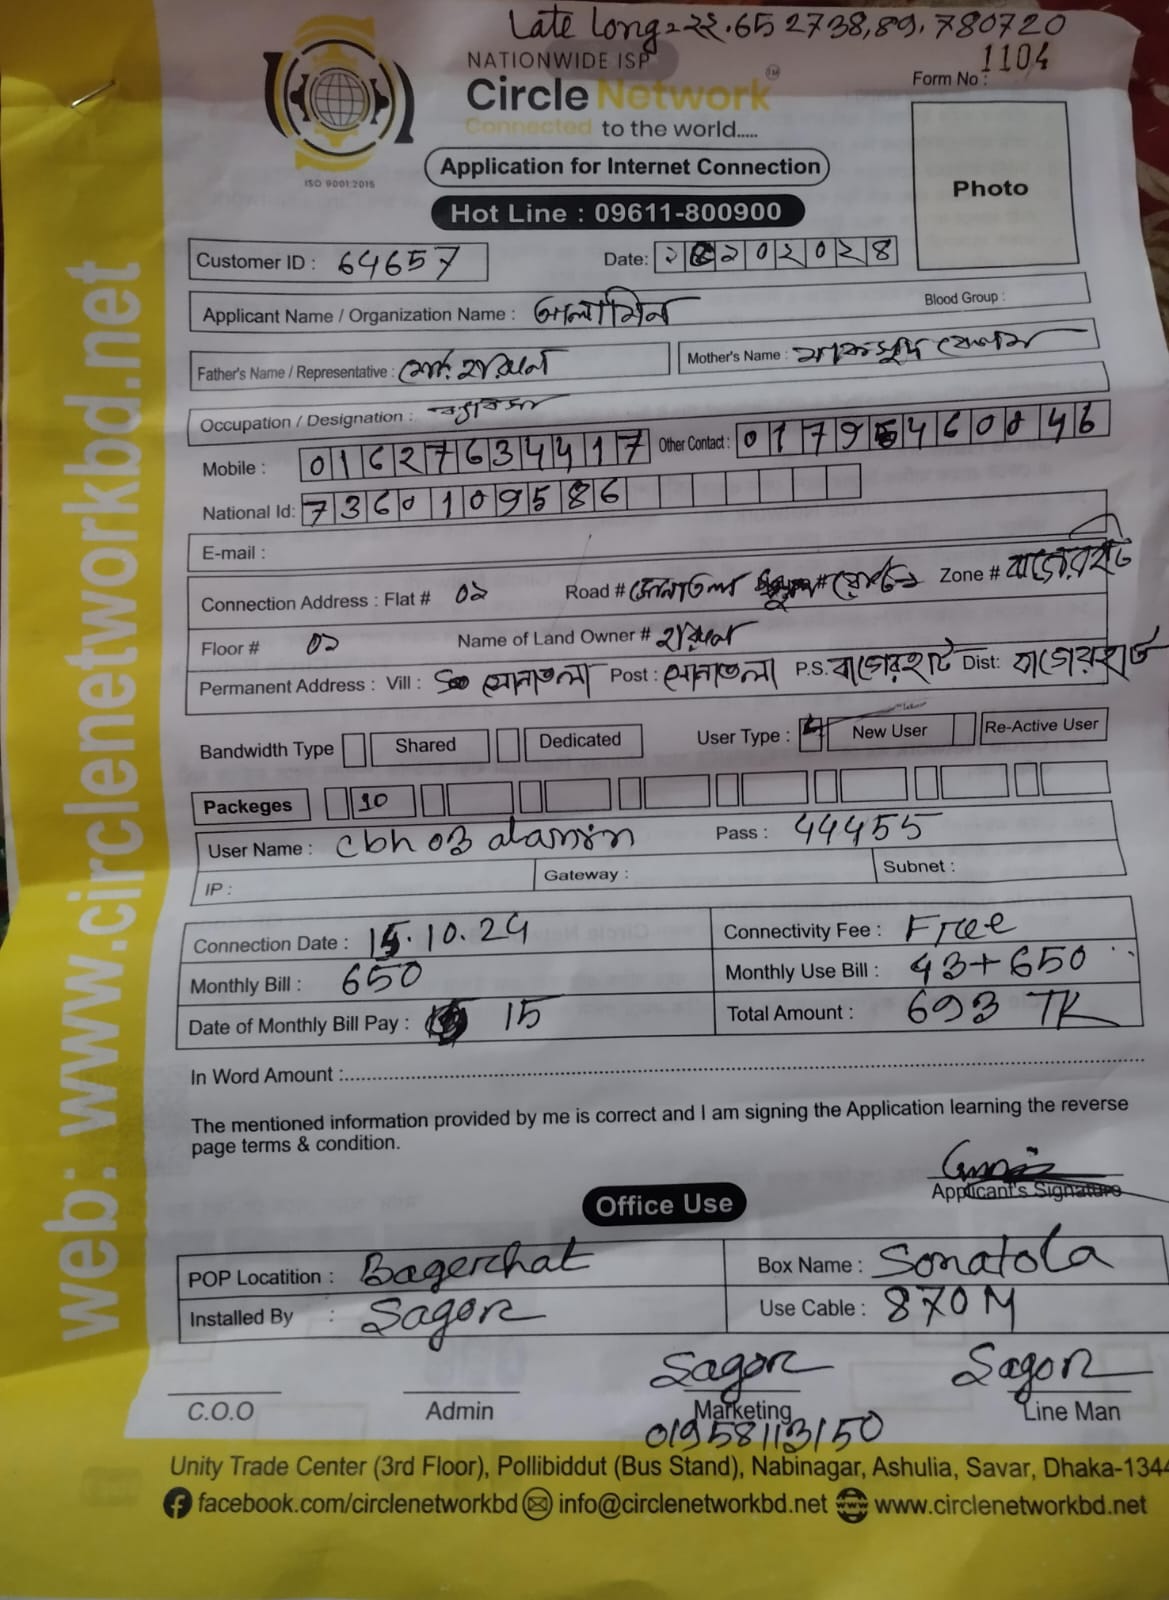 Late Long=২২.652738,89.780720
NATIONWIDE ISP
Circle Network TM
Connected to the world.....
ISO 9001:2015
Form No : 1104
Application for Internet Connection
Photo
Hot Line : 09611-800900
Customer ID : 64657 Date:
Applicant Name / Organization Name : আলামিন Blood Group :
Father's Name / Representative : মোঃ হারুন Mother's Name :
Occupation / Designation :
Mobile : 01627634417 Other Contact : 01795460846
National Id: 7360109586
E-mail :
Connection Address : Flat # ০১ Road # সোনাতলা Zone # বাগেরহাট
Floor # ০১ Name of Land Owner # হারুন
Permanent Address : Vill : সোনাতলা Post : সোনাতলা P.S. বাগেরহাট Dist: বাগেরহাট
Bandwidth Type Shared Dedicated User Type : New User Re-Active User
Packeges 10
User Name : cbh03alamin Pass : 44455
IP : Gateway : Subnet :
Connection Date : 15.10.24 Connectivity Fee : Free
Monthly Bill : 650 Monthly Use Bill : 43+650
Date of Monthly Bill Pay : 15 Total Amount : 693 TK
In Word Amount :
The mentioned information provided by me is correct and I am signing the Application learning the reverse
page terms & condition.
Applicant's Signature
Office Use
POP Locatition : Bagerhat Box Name : Sonatola
Installed By : Sagor Use Cable : 870M
Sagor Sagor
C.O.O Admin Marketing Line Man
01958113150
Unity Trade Center (3rd Floor), Pollibiddut (Bus Stand), Nabinagar, Ashulia, Savar, Dhaka-1344
facebook.com/circlenetworkbd info@circlenetworkbd.net www.circlenetworkbd.net
web: www.circlenetworkbd.net